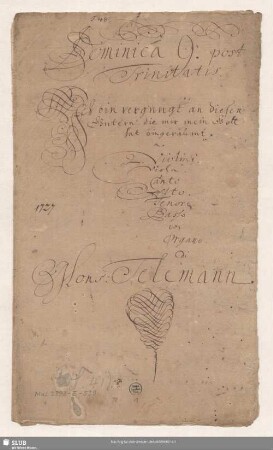 Dominica 9: post
Trinitatis
Ich bin vergnügt an diesen
Gütern die mir mein Gott
hat eingeräumt.
a
Violini
Viola
Canto
Alto
Tenore
Basso
con
Organo
1727
di
Mons: Telemann
SLUB
Wir führen Wissen.